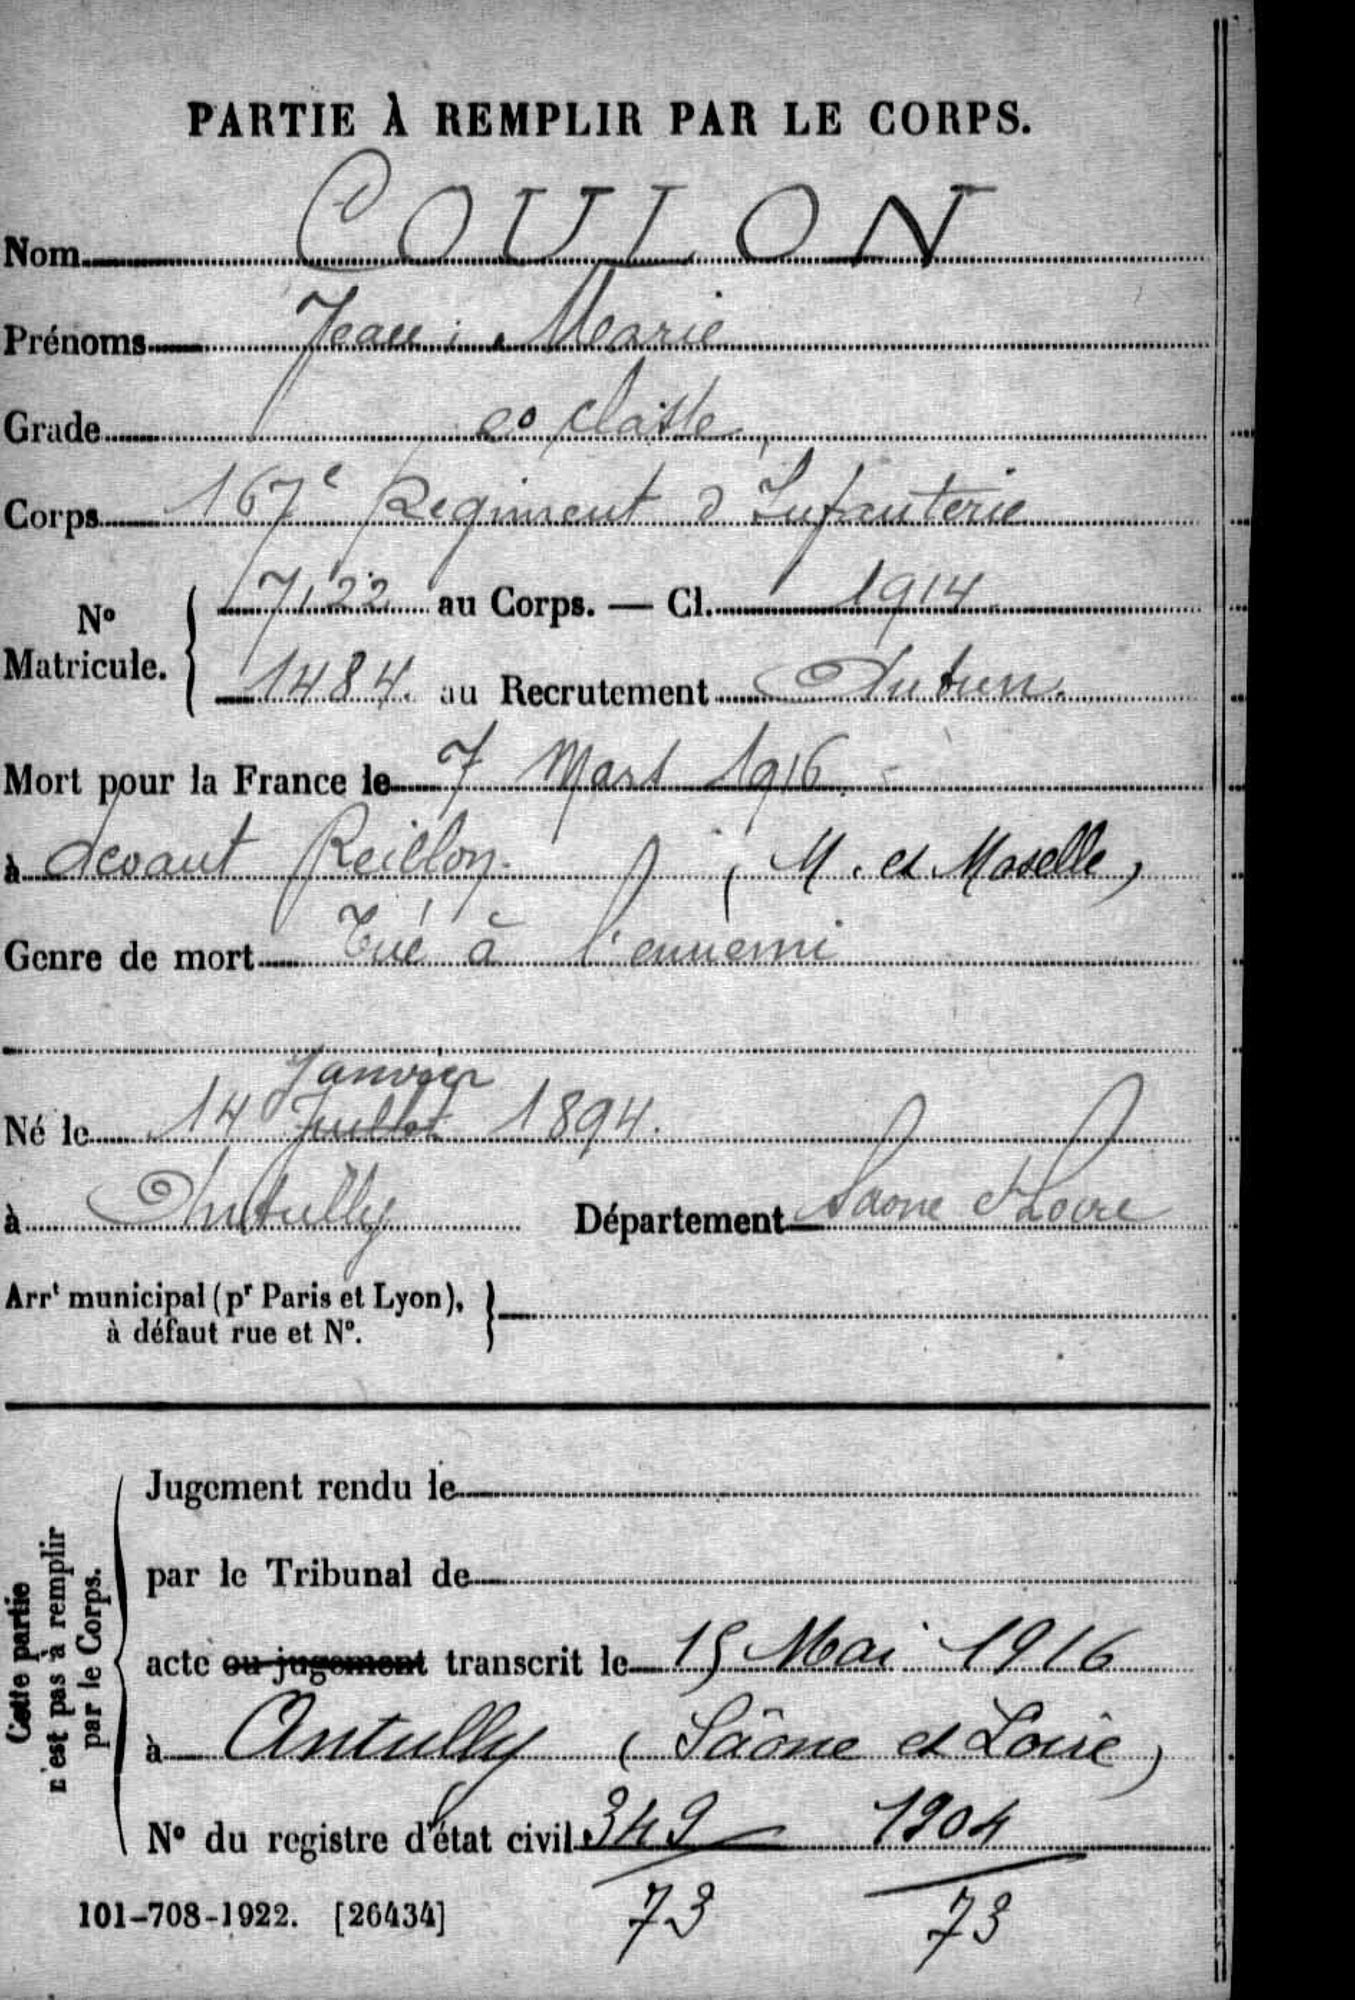 PARTIE À REMPLIR PAR LE CORPS.
Nom COULON
Prénoms Jean Marie
Grade 2e classe
Corps 167e Régiment d'Infanterie
N° Matricule. 7122 au Corps. — Cl. 1914
1484. au Recrutement Autun.
Mort pour la France le 7 Mars 1916.
à devant Reillon. (M. et Moselle)
Genre de mort Tué à l'ennemi
Janvier
Né le 14 Juillet 1894.
à Antully Département Saône et Loire
Arrt municipal (pr Paris et Lyon),
à défaut rue et N°.
Cette partie
n'est pas à remplir
par le Corps.
Jugement rendu le
par le Tribunal de
acte ou jugement transcrit le 15 Mai 1916
à Antully (Saône et Loire)
N° du registre d'état civil 349 1904
73 73
101-708-1922. [26434]